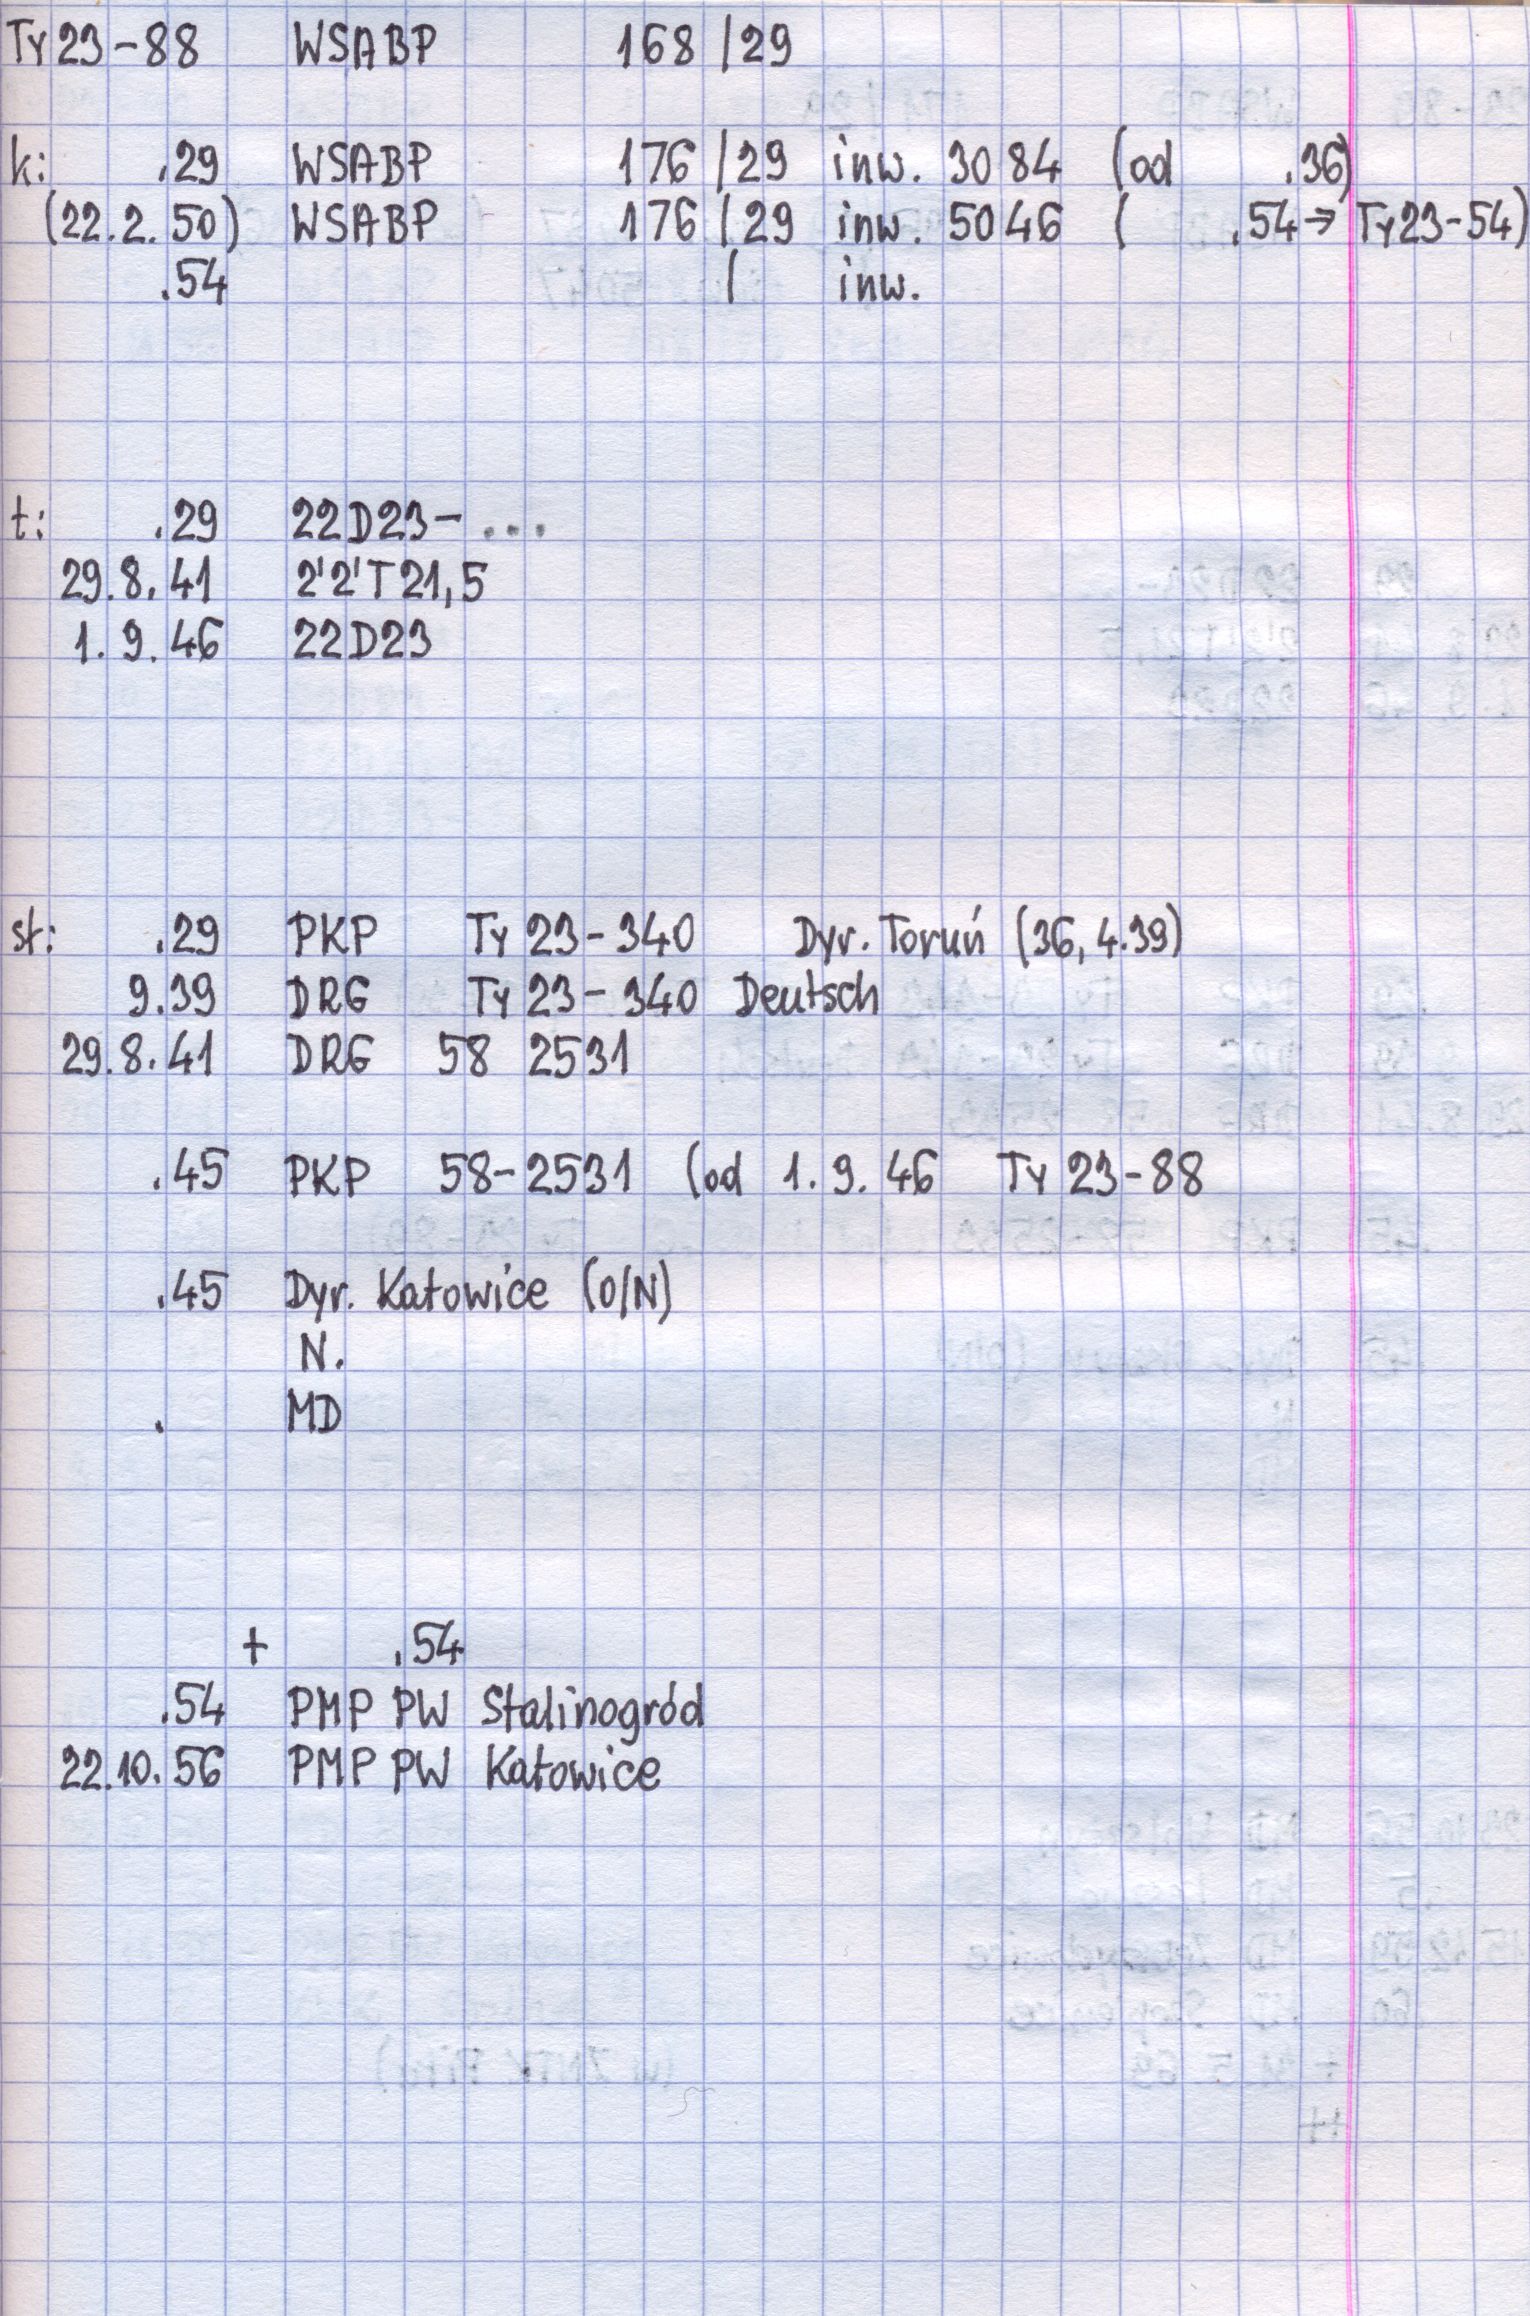 Ty23-88 WSABP 168/29
k: .29 WSABP 176/29 inw. 3084 (od .36)
(22.2.50) WSABP 176/29 inw. 5046 ( .54→ Ty23-54)
.54 / inw.
t: .29 22D23-...
29.8.41 2'2'T21,5
1.9.46 22D23
st: .29 PKP Ty23-340 Dyr. Toruń (36, 4.39)
9.39 DRG Ty23-340 Deutsch
29.8.41 DRG 58 2531
.45 PKP 58-2531 (od 1.9.46 Ty23-88
.45 Dyr. Katowice (O/N)
N.
. MD
+ .54
.54 PMP PW Stalinogród
22.10.56 PMP PW Katowice